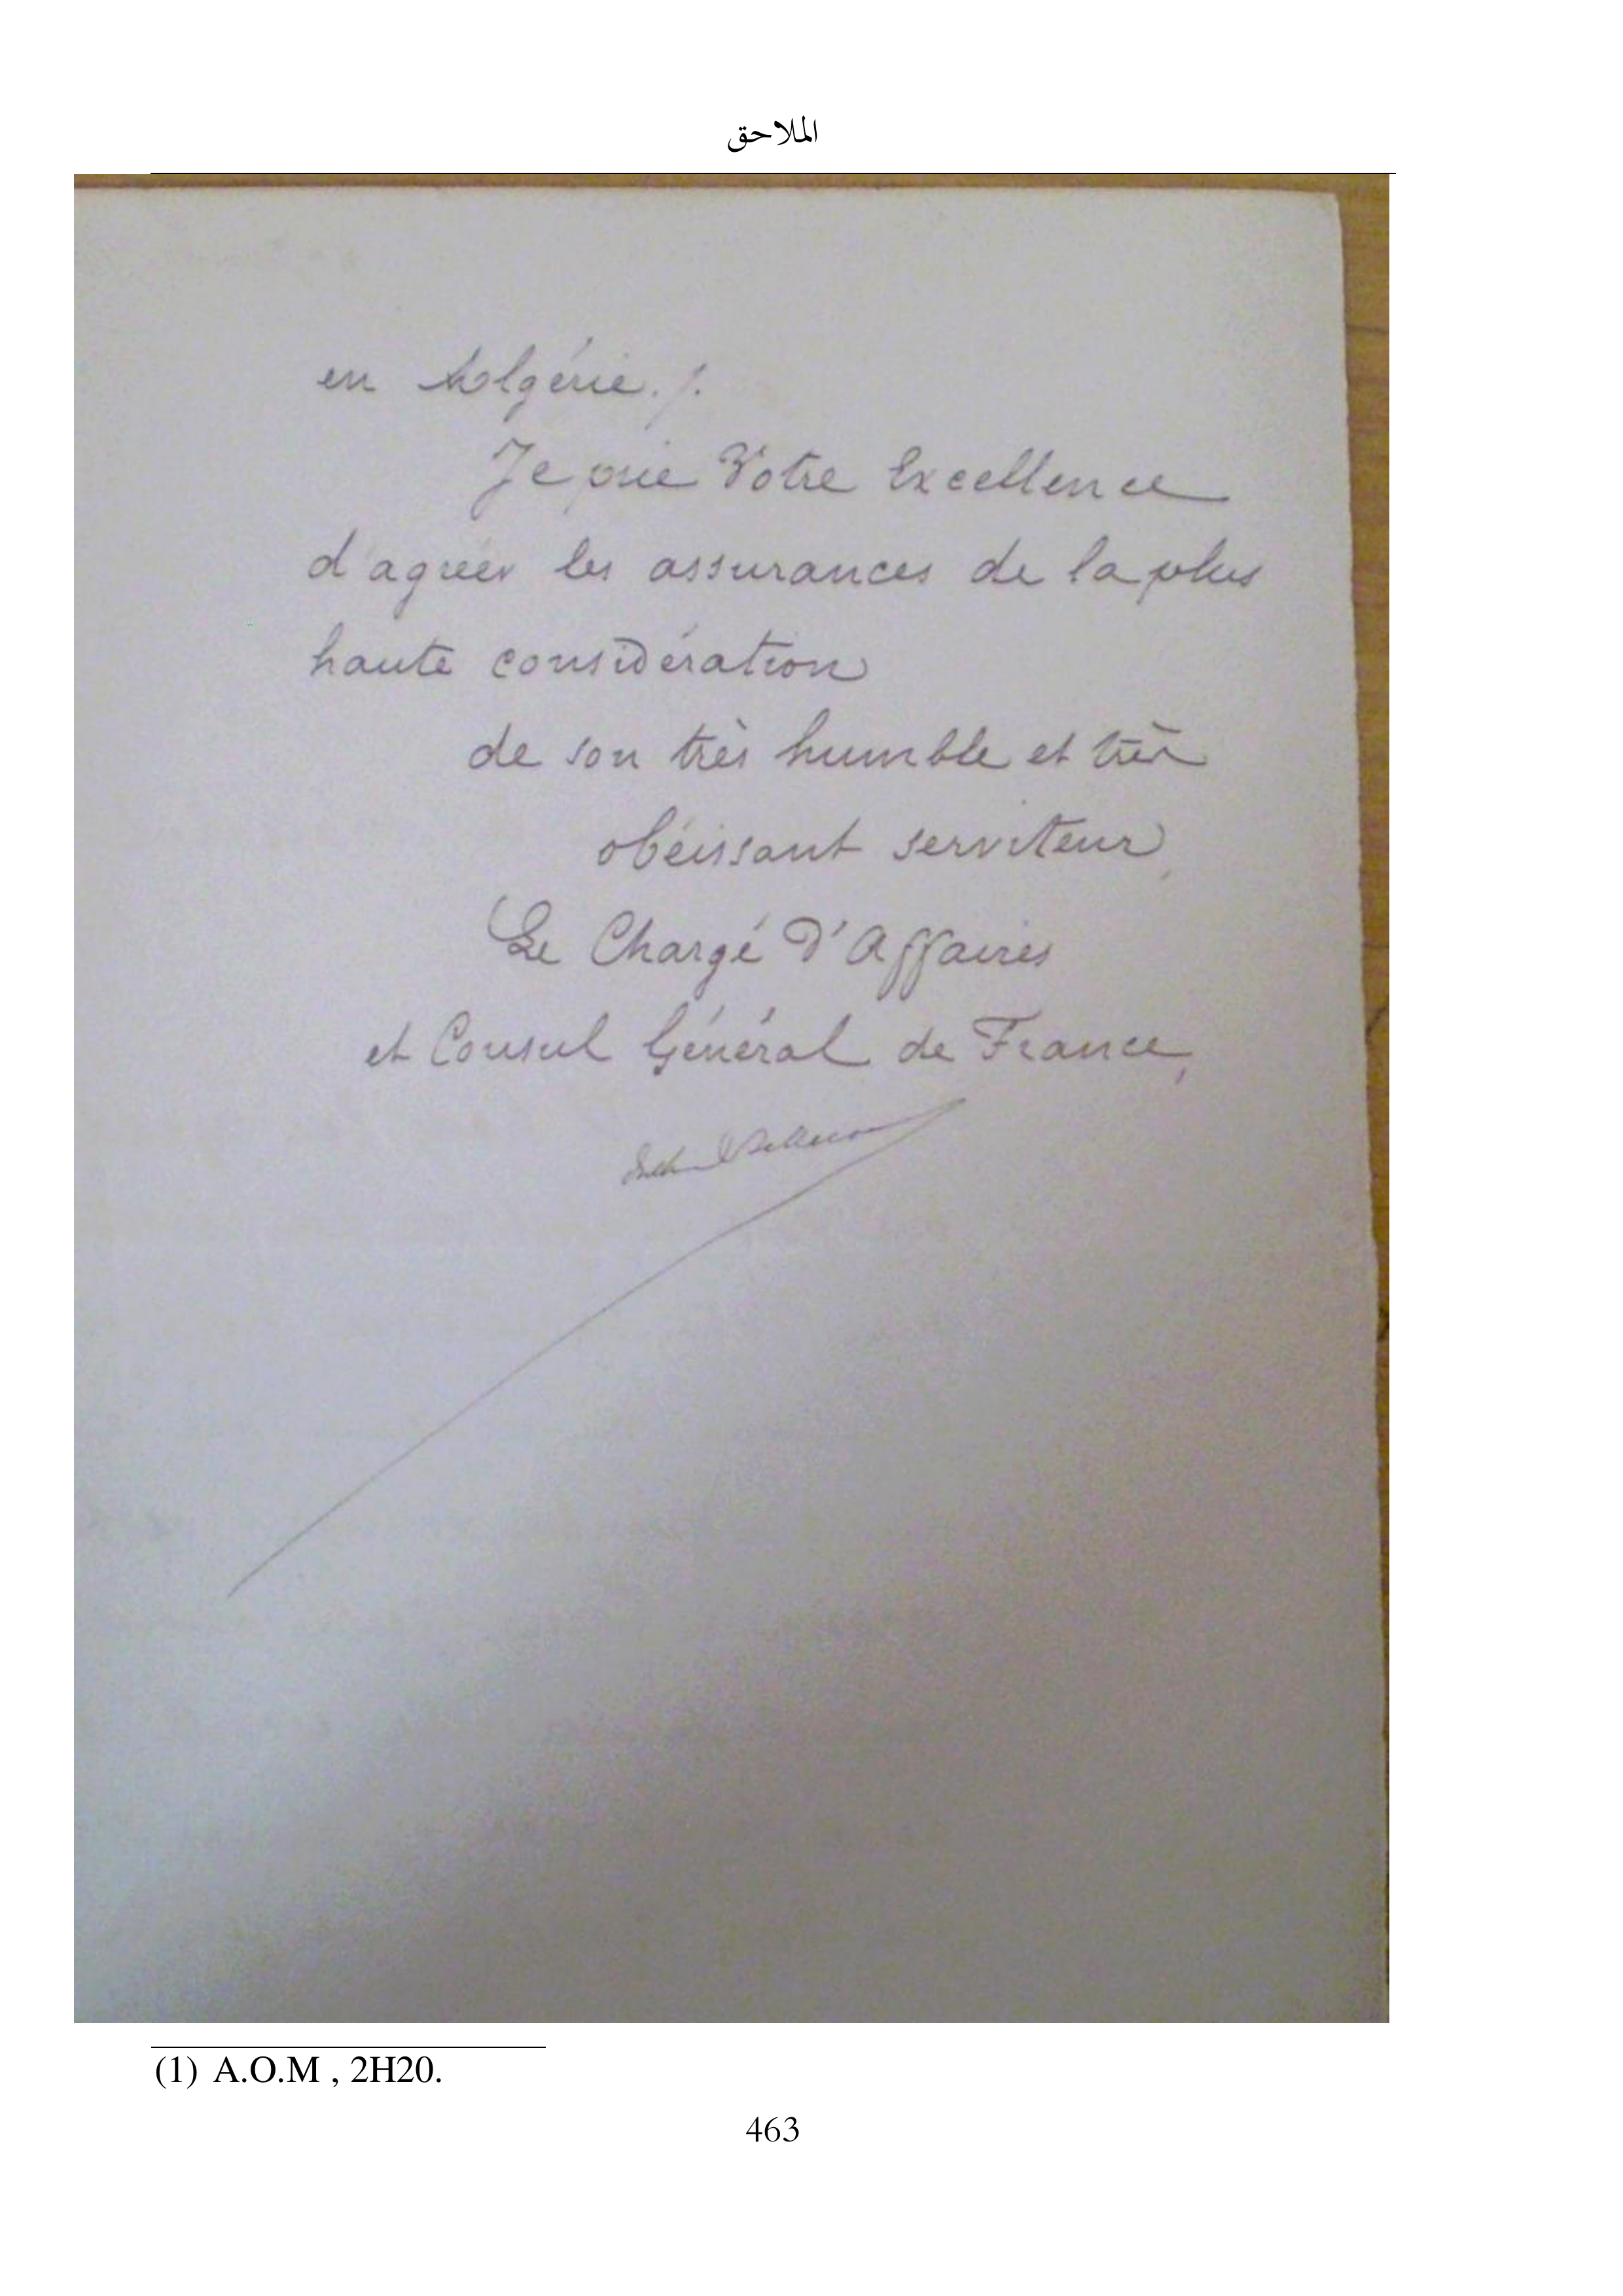 الملاحق
en Algérie ./.
Je prie Votre Excellence
d'agréer les assurances de la plus
haute considération
de son très humble et très
obéissant serviteur,
Le Chargé d'Affaires
et Consul Général de France,
(1) A.O.M , 2H20.
463